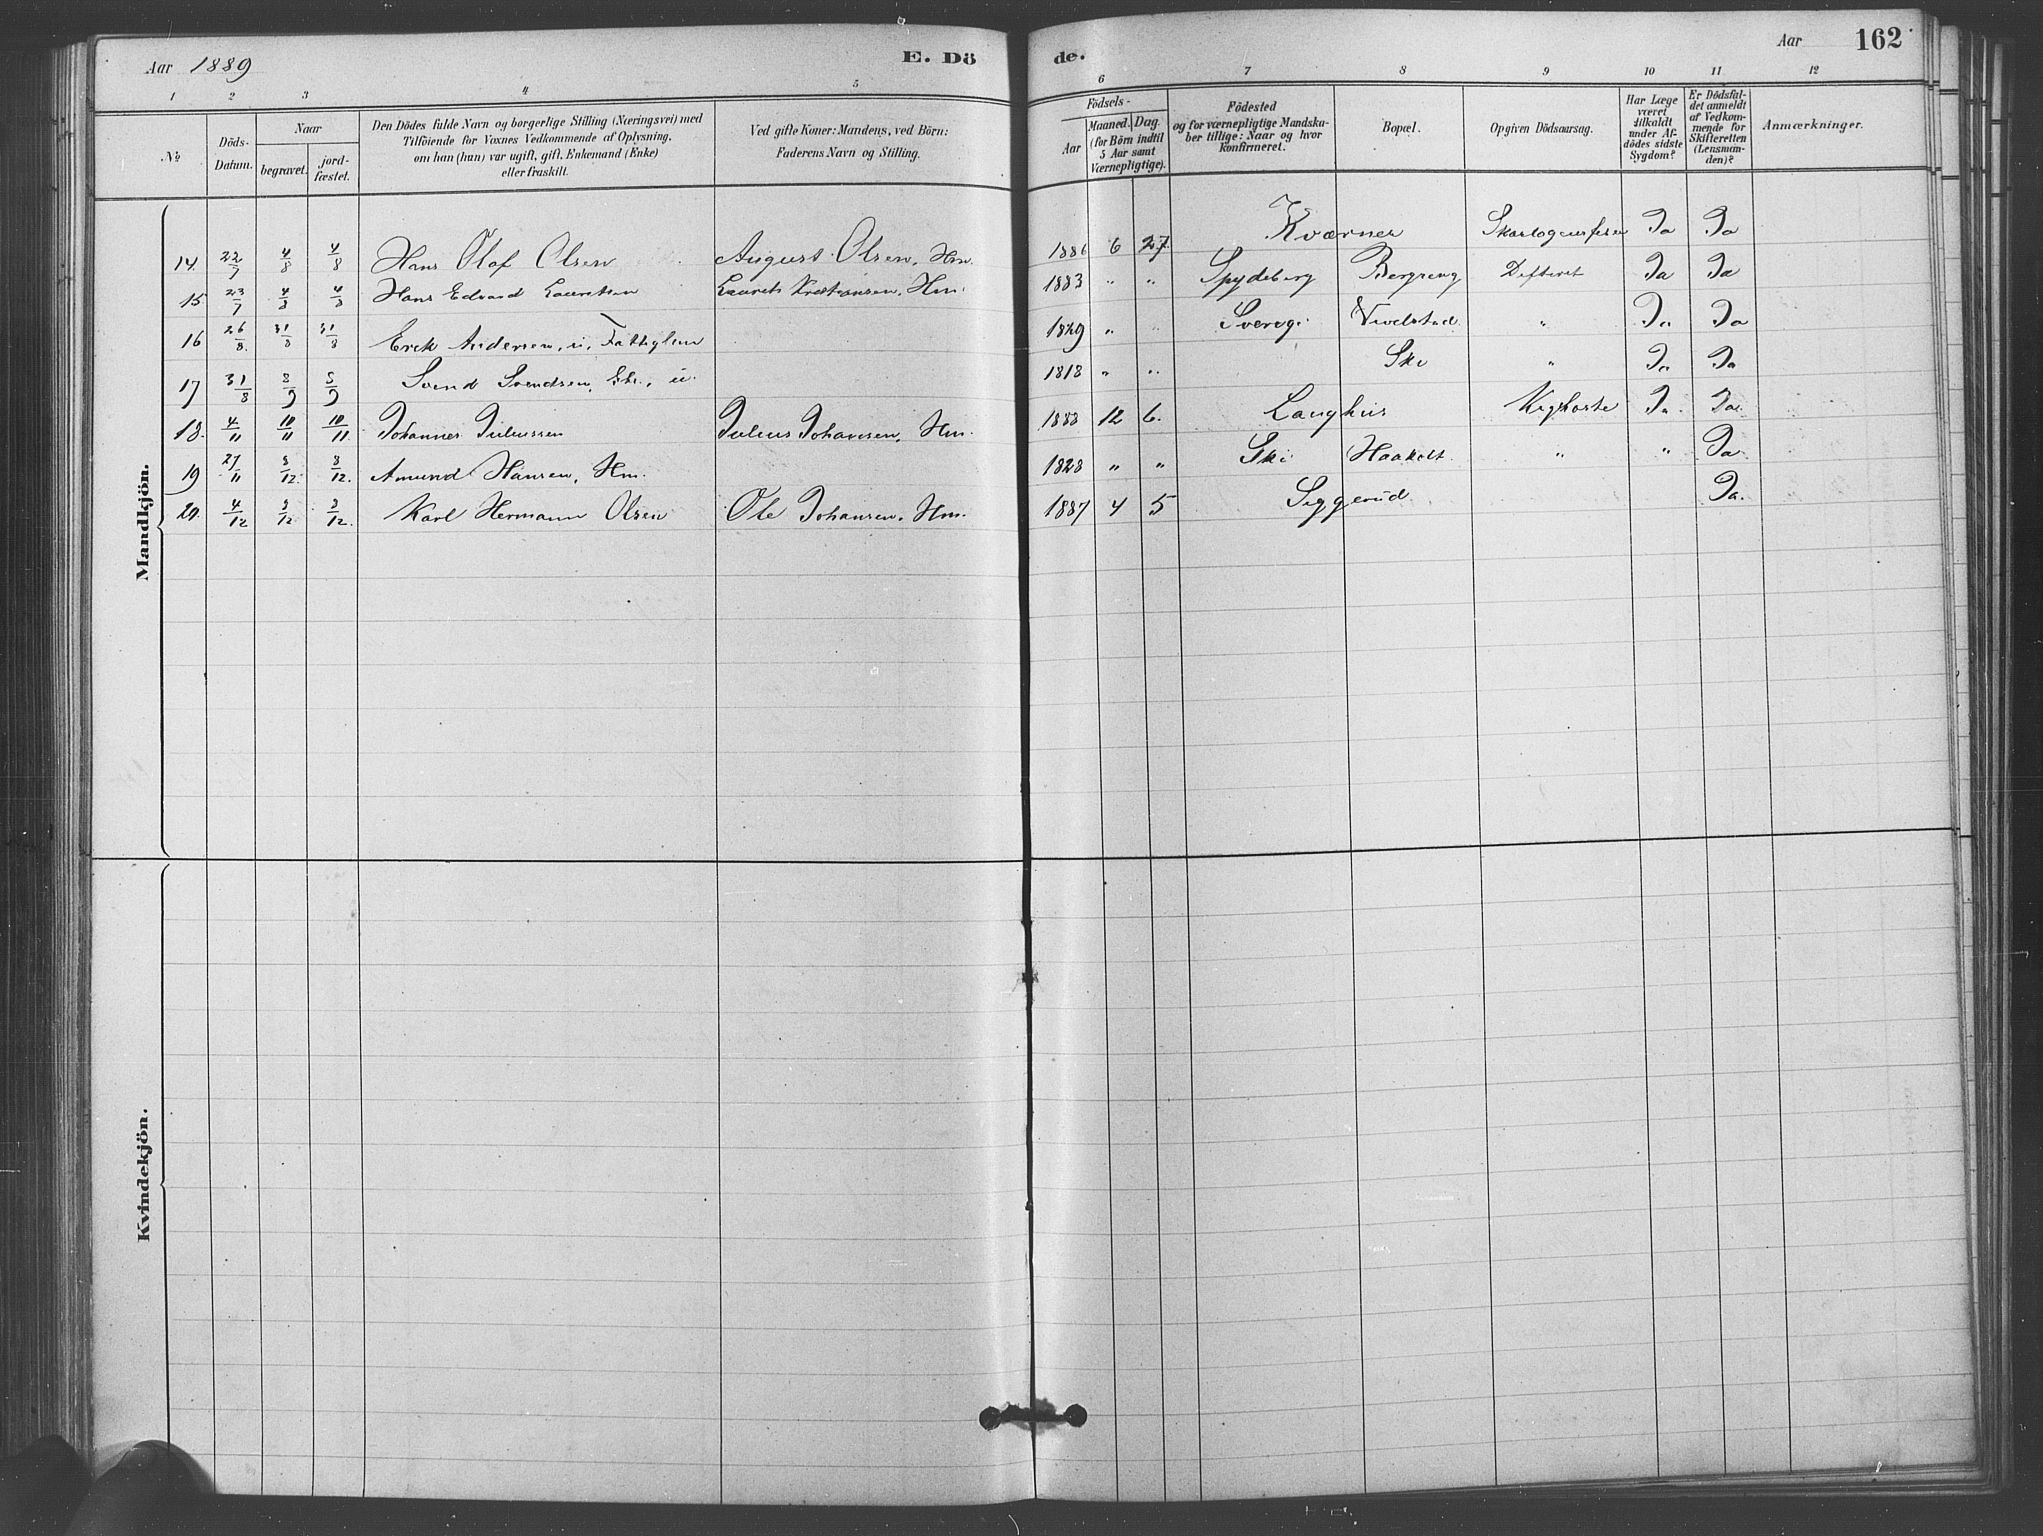 Aar 1889 E. Dö de. Aar 162
1 2 3 4 5 6 7 8 9 10 11 12
No
Döds-Datum.
Naar
begravet.
jord-fæstet.
Den Dödes fulde Navn og borgerlige Stilling (Næringsvei) med
Tilföiende for Voxnes Vedkommende af Oplysning,
om han (hun) var ugift, gift, Enkemand (Enke)
eller fraskilt.
Ved gifte Koner: Mandens, ved Börn:
Faderens Navn og Stilling.
Födsels-
Aar
Maaned. Dag.
(for Börn indtil
5 Aar samt
Værnepligtige).
Födested
og for værnepligtige Mandska-
ber tillige: Naar og hvor
konfirmeret.
Bopæl.
Opgiven Dödsaarsag.
Har Læge
været
tilkaldt
under Af-
dödes sidste
Sygdom?
Er Dödsfal-
det anmeldt
af Vedkom-
mende for
Skifteretten
(Lensman-
den)?
Anmærkninger.
Mandkjön.
14. 22/7 4/8 4/8 Hans Olaf Olsen August Olsen, Hm. 1886 6 27. Kværner Ja Ja
15 23/7 4/8 4/8 Hans Edvard Lauritsen Laurits Kristiansen, Hm. 1883 " " Spydeberg Bergeng Difterit Ja Ja
16 26/8. 31/8 31/8 Erik Andersen, u, Fattiglem 1829 " " Sverige Vevelstad " Ja Ja
17 31/8 8/9 8/9 Svend Svendsen, u. 1818 " " Ski " Ja Ja
18. 4/11 10/11 10/11 Johannes Juliussen Julius Johansen, Hm. 1888 12 6. Langhus Kighoste Ja Ja.
19 27/11 8/12. 8/12. Amund Hansen, Hm. 1828 " " Ski Haakolt. " " Ja.
20. 4/12 8/12 8/12. Karl Hermann Olsen Ole Johansen, Hm. 1887 4 5 Siggerud. Ja.
Kvindekjön.